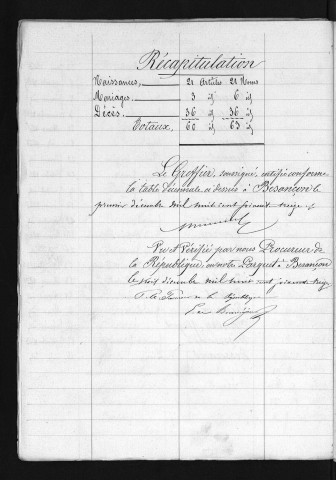 Récapitulation
Naissances, 21 Articles 21 Noms
Mariages, 3 d° 6 d°
Décès, 36 d° 36 d°
Totaux, 60 d° 63 d°
Le Greffier, soussigné, certifie conforme
la table Décennale ci dessus à Besançon le
premier décembre mil huit cent soixante treize
Vu et Vérifié par nous Procureur de
la République, en notre Parquet à Besançon
le trois décembre mil huit cent soixante treize
P. le Procureur de la République